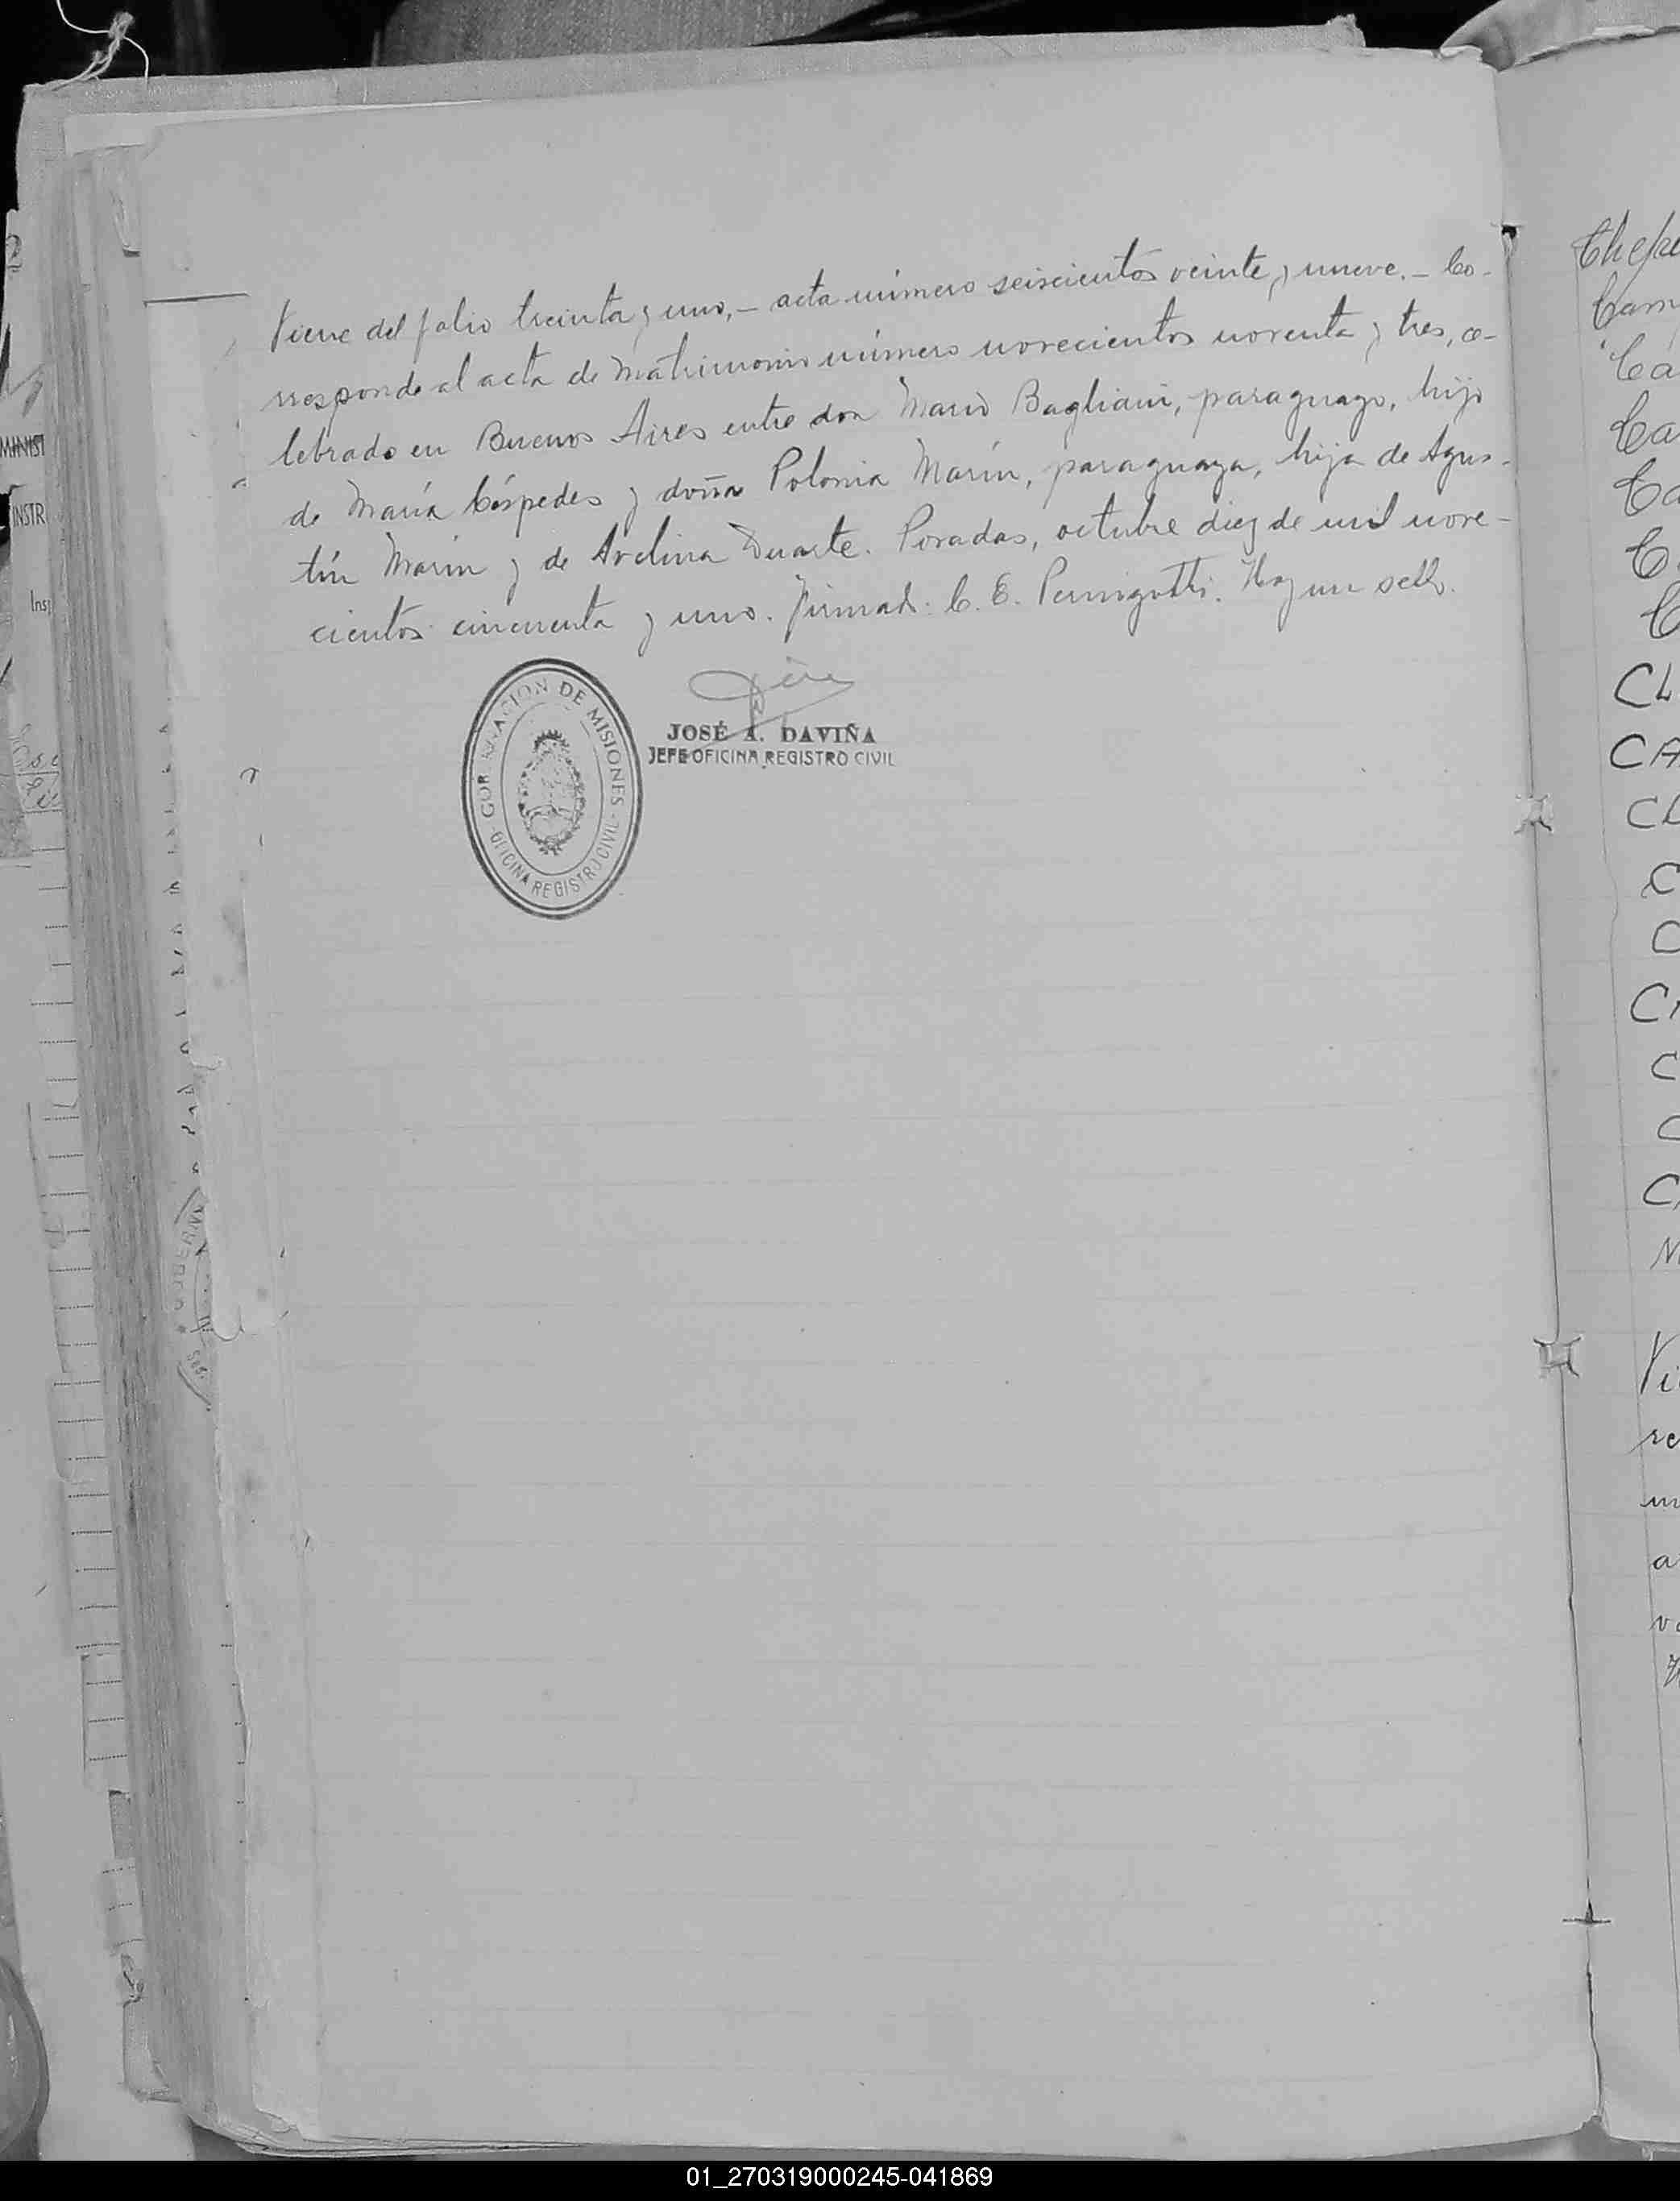 Viene del folio treinta y uno, - acta número seiscientos veinte y nueve. - Co-
rresponde al acta de Matrimonio número novecientos noventa y tres, ce-
lebrado en Buenos Aires entre don Mario Bagliani, paraguayo, hijo
de María Céspedes y doña Polonia Marín, paraguaya, hija de Agus-
tín Marín y de Avelina Duarte. Posadas, octubre diez de mil nove-
cientos cincuenta y uno. Firmado: C. E. Pernigotti. Hay un sello.
GOBERNACION DE MISIONES
OFICINA REGISTRO CIVIL
JOSÉ A. DAVIÑA
JEFE OFICINA REGISTRO CIVIL
MINIST
INSTR
Ins
CL
CA
CL
C
C
C
C
C
01_270319000245-041869